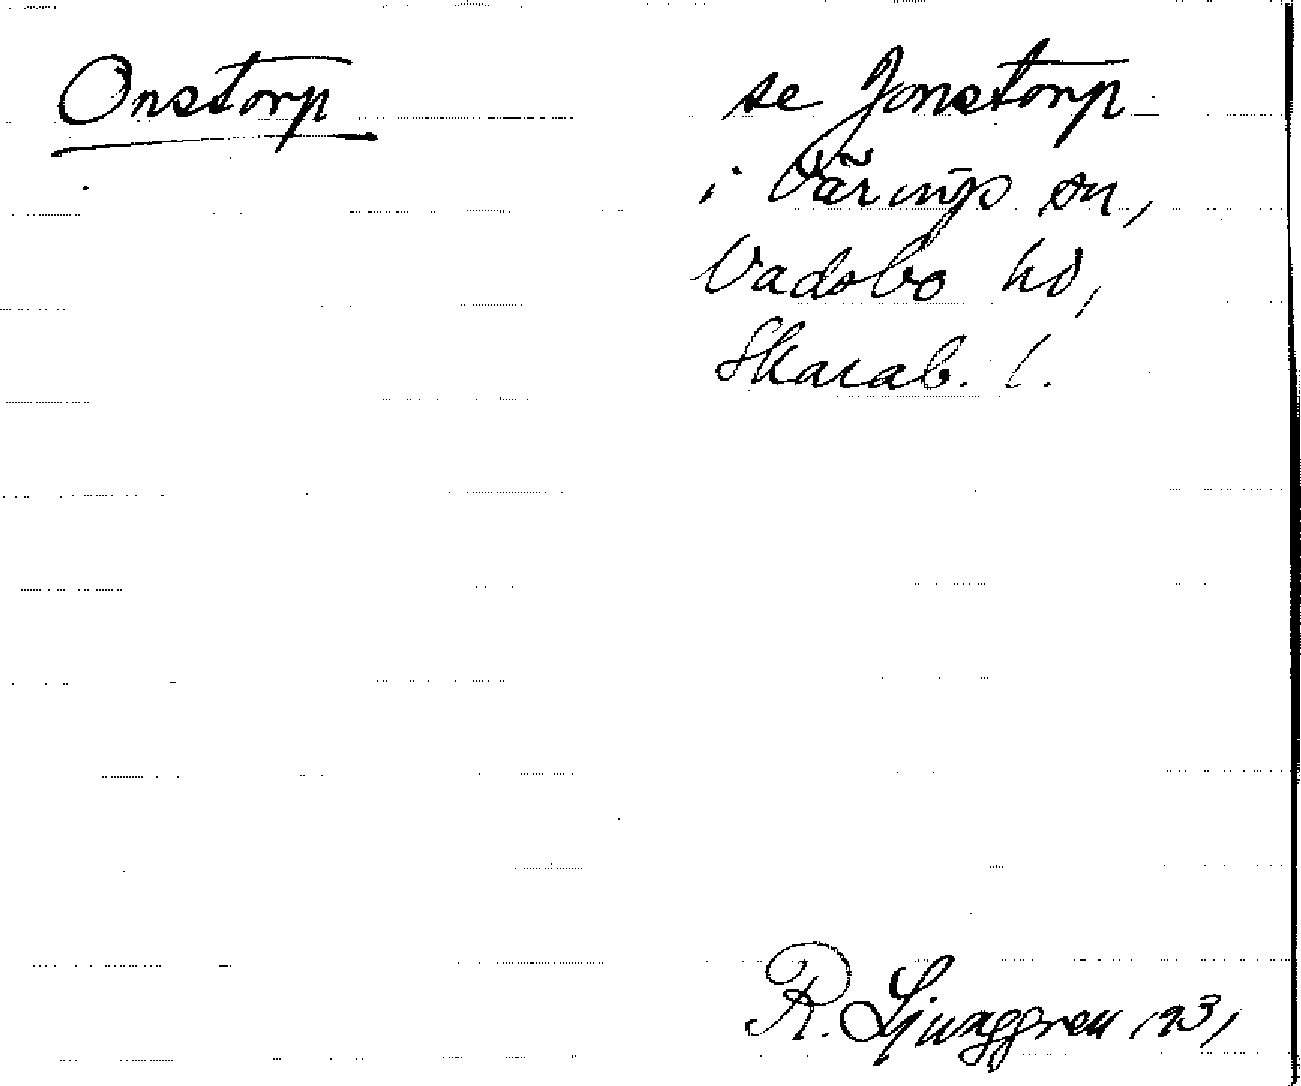 Onstorp
se Jonstorp
i Värings sn,
Vadsbo hd,
Skarab. l.
R. Ljunggren 23,